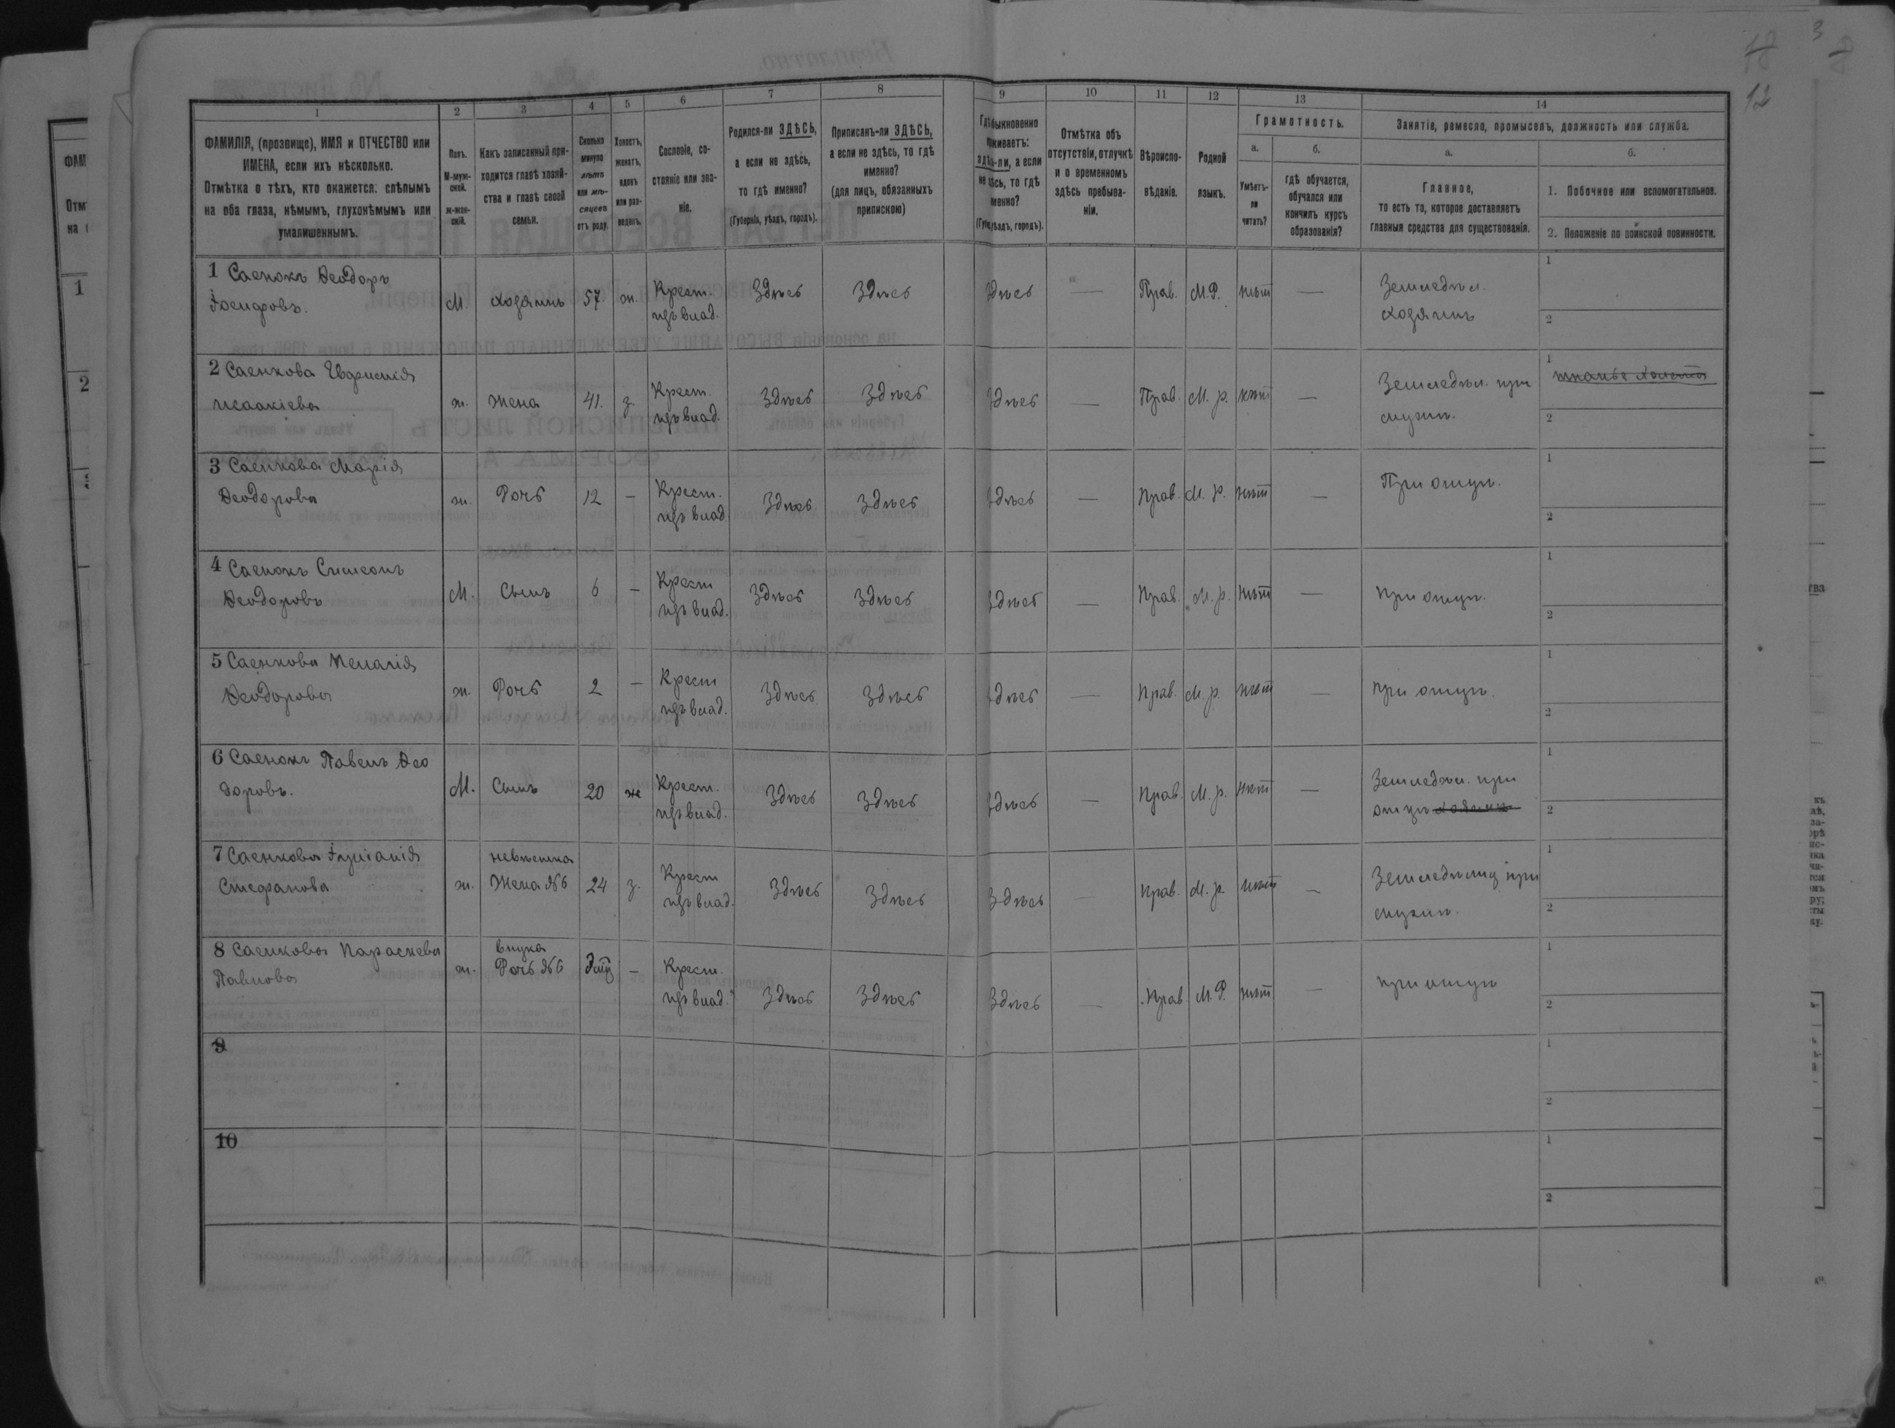 12
1 2 3 4 5 6 7 8 9 10 11 12 13 14
ФАМИЛІЯ, (прозвище), ИМЯ и ОТЧЕСТВО или
ИМЕНА, если ихъ нѣсколько.
Отмѣтка о тѣхъ, кто окажется: слѣпымъ
на оба глаза, нѣмымъ, глухонѣмымъ или
умалишеннымъ.
Полъ.
М-муж-
ской.
ж-жен-
скій.
Какъ записанный при-
ходится главѣ хозяй-
ства и главѣ своей
семьи.
Сколько
минуло
лѣтъ
или мѣ-
сяцевъ
отъ роду.
Холостъ,
женатъ,
вдовъ
или раз-
веденъ.
Сословіе, со-
стояніе или зва-
ніе.
Родился-ли ЗДѢСЬ,
а если не здѣсь,
то гдѣ именно?
(Губернія, уѣздъ, городъ).
Приписанъ-ли ЗДѢСЬ,
а если не здѣсь, то гдѣ
именно?
(для лицъ, обязанныхъ
припискою)
Отмѣтка объ
отсутствіи, отлучкѣ
и о временномъ
здѣсь пребыва-
ніи.
Вѣроиспо-
вѣданіе.
Родной
языкъ.
Грамотность.
а.
Умѣетъ-
ли
читать?
б.
гдѣ обучается,
обучался или
кончилъ курсъ
образованія?
Занятіе, ремесло, промыселъ, должность или служба.
а.
Главное,
то есть то, которое доставляетъ
главныя средства для существованія.
б.
1. Побочное или вспомогательное.
2. Положеніе по воинской повинности.
1 Саенокъ Ѳеодоръ
Іосифовъ.
М. хозяинъ 57 ж. Крест.
изъ влад. Здѣсь Здѣсь Здѣсь — Прав. М.Р. нѣт — Земледѣл.
хозяинъ
1
2
2 Саенкова Евфимія
Исаакіева
ж. жена 41. з. Крест.
изъ влад. Здѣсь Здѣсь Здѣсь — Прав. М. р. нѣт — Земледѣл. при
мужѣ.
1
2
3 Саенкова Марія
Ѳеодорова
ж. Дочь 12 — Крест.
изъ влад. Здѣсь Здѣсь Здѣсь — Прав. М. р. нѣт — При отцѣ.
1
2
4 Саенокъ Симеонъ
Ѳеодоровъ
М. Сынъ 6 — Крест
изъ влад. Здѣсь Здѣсь Здѣсь — Прав М. р. нѣт — при отцѣ.
1
2
5 Саенкова Пелагія
Ѳеодорова
ж. Дочь 2 — Крест
изъ влад. Здѣсь Здѣсь Здѣсь — Прав. М. р нѣт — при отцѣ.
1
2
6 Саенокъ Павелъ Ѳео
доровъ.
М. Сынъ 20 ж Крест.
изъ влад. Здѣсь Здѣсь Здѣсь — Прав. М. р. нѣт — Земледѣл. при
отцѣ хозяинъ
1
2
7 Саенкова Іуліанія
Стефанова
ж. невѣстка
Жена №6 24 з. Крест
изъ влад. Здѣсь Здѣсь Здѣсь — Прав. М. р нѣт — Земледѣлиц при
мужѣ.
1
2
8 Саенкова Параскева
Павлова
ж. внука
Дочь №6 — Крест.
изъ влад. Здѣсь Здѣсь Здѣсь — Прав. М. Р. нѣт — при отцѣ
1
2
9
1
2
10
1
2